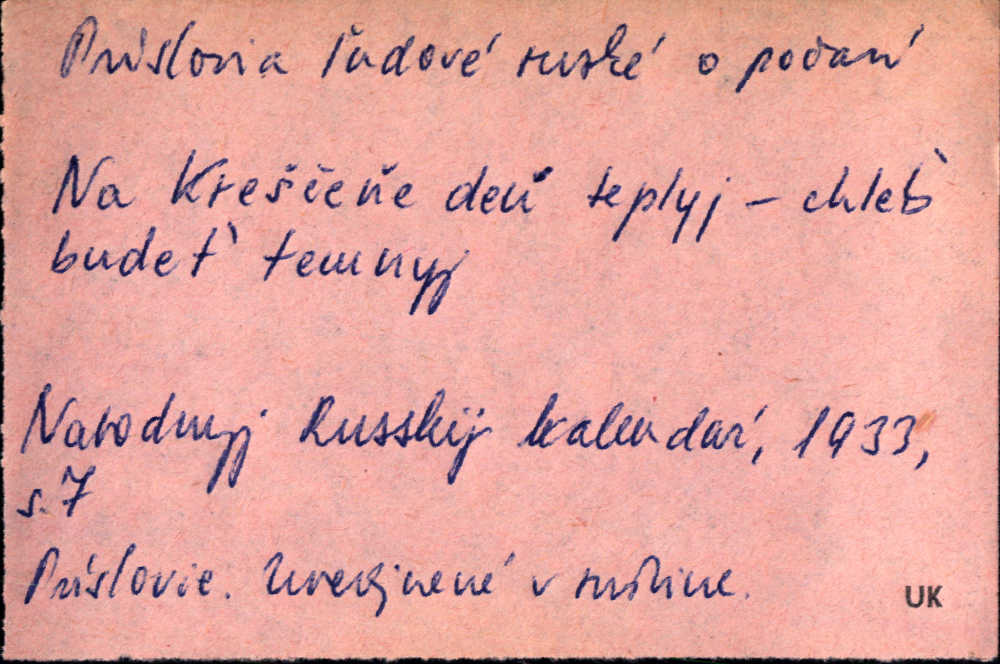 Príslovia ľudové ruské o počasí
Na Kreščeňe deň teplyj – chleb
budeť temnyj
Narodnyj Russkij kalendar', 1933,
s. 7
Príslovie. Uverejnené v ruštine.
UK